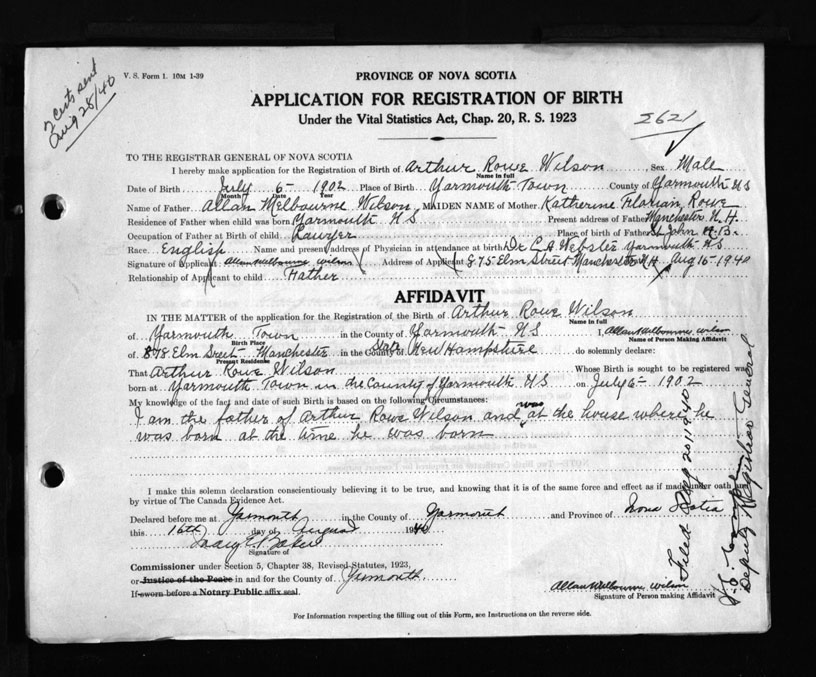 2 Certs sent
Aug 28/40
V. S. Form 1. 10M 1-39
PROVINCE OF NOVA SCOTIA
APPLICATION FOR REGISTRATION OF BIRTH
Under the Vital Statistics Act, Chap. 20, R. S. 1923
TO THE REGISTRAR GENERAL OF NOVA SCOTIA
I hereby make application for the Registration of Birth of Arthur Rowe Wilson Sex Male
Name in full
Date of Birth July 6- 1902 Place of Birth Yarmouth Town County of Yarmouth NS
Month Date Year
Name of Father Allan Melbourne Wilson MAIDEN NAME of Mother Katherine Florian Rowe
Residence of Father when child was born Yarmouth N.S. Present address of Father Manchester N.H.
Occupation of Father at Birth of child Lawyer Place of birth of Father St John N.B.
Race English Name and present address of Physician in attendance at birth Dr C A Webster Yarmouth N.S.
Signature of Applicant Allan Melbourne Wilson Address of Applicant 875 Elm Street Manchester N.H. Aug 15-1940
Relationship of Applicant to child Father
AFFIDAVIT
IN THE MATTER of the application for the Registration of the Birth of Arthur Rowe Wilson
Name in full
of Yarmouth Town in the County of Yarmouth NS I, Allan Melbourne Wilson
Birth Place Name of Person Making Affidavit
of 878 Elm Street Manchester in the County of State New Hampshire do solemnly declare:
Present Residence
That Arthur Rowe Wilson Whose Birth is sought to be registered was
born at Yarmouth Town in the County of Yarmouth NS on July 6- 1902
My knowledge of the fact and date of such Birth is based on the following Circumstances:
I am the father of Arthur Rowe Wilson and was at the house where he
was born at the time he was born
I make this solemn declaration conscientiously believing it to be true, and knowing that it is of the same force and effect as if made under oath and
by virtue of The Canada Evidence Act.
Declared before me at Yarmouth in the County of Yarmouth and Province of Nova Scotia
this 16th day of August 1940
Signature of
Commissioner under Section 5, Chapter 38, Revised Statutes, 1923,
or Justice of the Peace in and for the County of Yarmouth.
If sworn before a Notary Public affix seal.
Allan Melbourne Wilson
Signature of Person making Affidavit
For Information respecting the filling out of this Form, see Instructions on the reverse side.
Filed Aug 20 1940
Deputy Registrar General